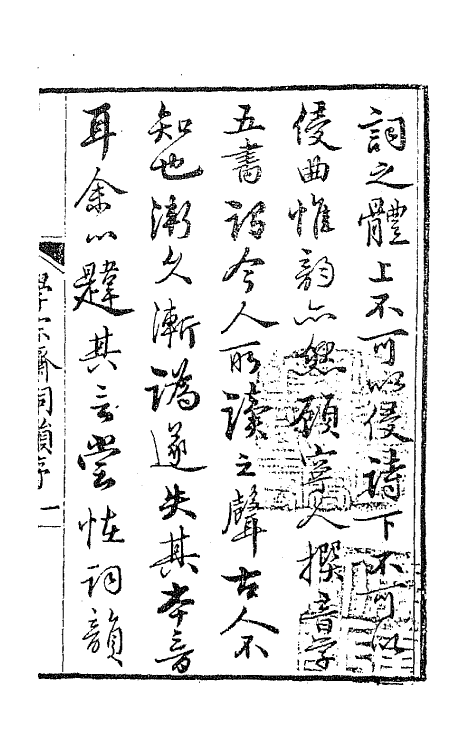 詞之體上不可以侵詩下不可以
侵曲惟韵亦然顧寧人撰音学
五書謂今人所讀之聲古人不
知也漸久漸譌遂失其本音
耳余以韙其言嘗怪词韻
學宋齋詞韻序 一